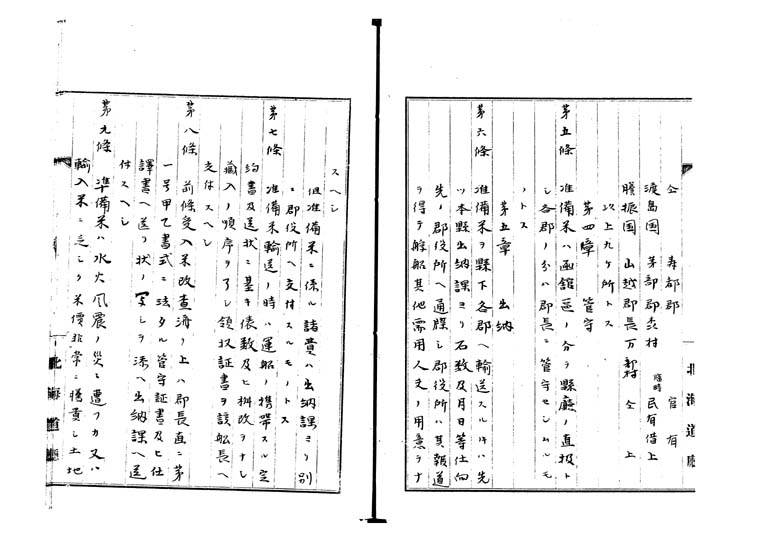 仝 寿都郡 官有
渡島国 茅部郡森村 臨時民有借上
膽振国 山越郡長万部村 仝上
以上九ケ所トス
第四章 管守
第五條 准備米ハ函館区ノ分ヲ縣廳ノ直扱ト
シ各郡ノ分ハ郡長ニ管守セシムルモ
ノトス
第五章 出納
第六條 准備米ヲ縣下各郡ヘ輸送スル件ハ先
ツ本縣出納課ヨリ石数及月日等仕向
先ノ郡役所ヘ通牒シ郡役所ハ其報道
ヲ得テ艀船其他需用人夫ノ用意ヲナ
北海道廳
スヘシ
但准備米ニ係ル諸費ハ出納課ヨリ別
ニ郡役所ヘ交付スルモノトス
第七條 准備米輸送ノ時ハ運船ノ携帯スル定
約書及送状ニ基キ俵数及ヒ桝改ヲナシ
藏入ノ順序ヲ了シ領収証書ヲ該舩長ヘ
交付スヘシ
第八條 前條受入米改査済ノ上ハ郡長直ニ第
一号甲乙書式ニ法タル管守証書及ヒ仕
譯書ヘ送リ状ノ写シヲ添ヘ出納課ヘ送
付スヘシ
第九條 準備米ハ水火風震ノ災ニ遭フカ又ハ
輸入米ニ乏シク米價非常ニ騰貴シ土地
北海道廳